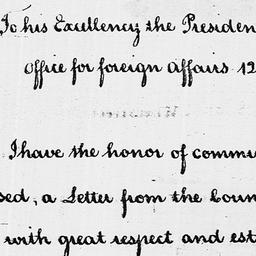 To his Excellency the Presiden
Office for foreign Affairs 12
I have the honor of commu
sed, a Letter from the Coun
with great respect and est